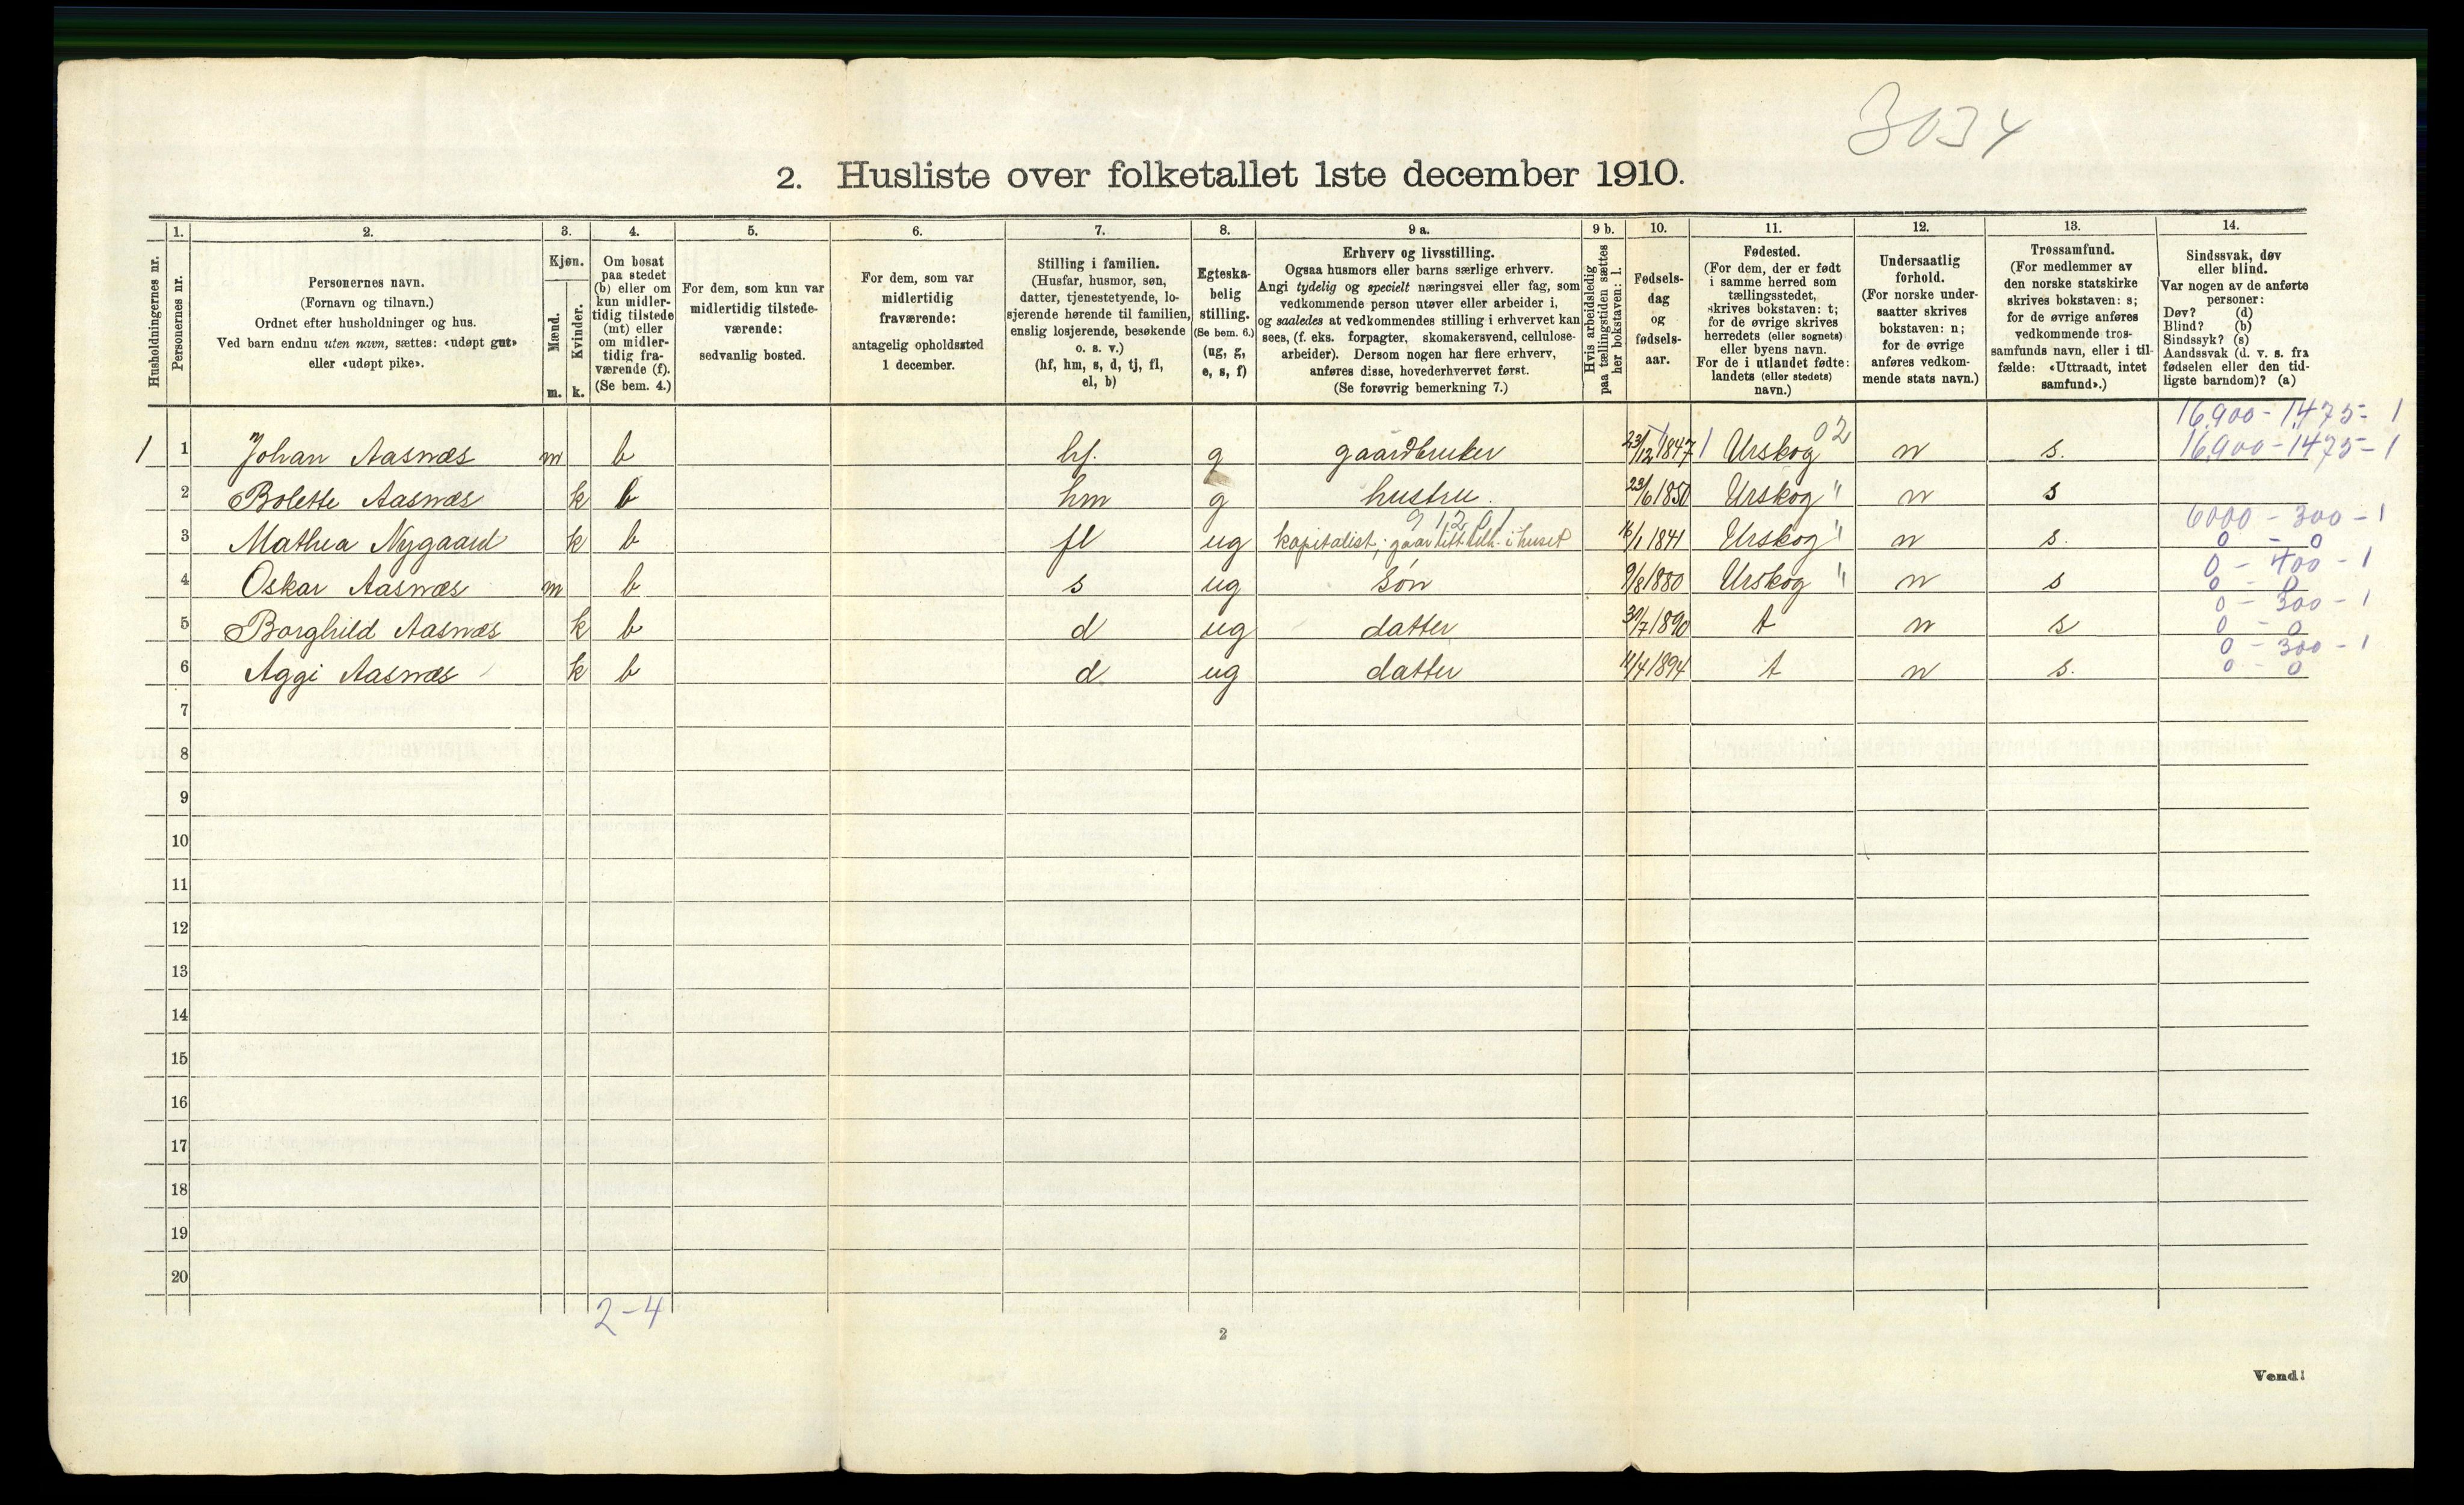 3034
2. Husliste over folketallet 1ste december 1910.
Husholdningernes nr.
1.
Personernes nr.
2.
Personernes navn.
(Fornavn og tilnavn.)
Ordnet efter husholdninger og hus.
Ved barn endnu uten navn, sættes: «udøpt gut»
eller «udøpt pike».
3.
Kjøn.
Mænd.
Kvinder.
m. k.
4.
Om bosat
paa stedet
(b) eller om
kun midler-
tidig tilstede
(mt) eller
om midler-
tidig fra-
værende (f).
(Se bem. 4.)
5.
For dem, som kun var
midlertidig tilstede-
værende:
sedvanlig bosted.
6.
For dem, som var
midlertidig
fraværende:
antagelig opholdssted
1 december.
7.
Stilling i familien.
(Husfar, husmor, søn,
datter, tjenestetyende, lo-
sjerende hørende til familien,
enslig losjerende, besøkende
o. s. v.)
(hf, hm, s, d, tj, fl,
el, b)
8.
Egteska-
belig
stilling.
(Se bem. 6.)
(ug, g,
e, s, f)
9 a.
Erhverv og livsstilling.
Ogsaa husmors eller barns særlige erhverv.
Angi tydelig og specielt næringsvei eller fag, som
vedkommende person utøver eller arbeider i,
og saaledes at vedkommendes stilling i erhvervet kan
sees, (f. eks. forpagter, skomakersvend, cellulose-
arbeider). Dersom nogen har flere erhverv,
anføres disse, hovederhvervet først.
(Se forøvrig bemerkning 7.)
9 b.
Hvis arbeidsledig
paa tællingstiden sættes
her bokstaven: l.
10.
Fødsels-
dag
og
fødsels-
aar.
11.
Fødested.
(For dem, der er født
i samme herred som
tællingsstedet,
skrives bokstaven: t;
for de øvrige skrives
herredets (eller sognets)
eller byens navn.
For de i utlandet fødte:
landets (eller stedets)
navn.)
12.
Undersaatlig
forhold.
(For norske under-
saatter skrives
bokstaven: n;
for de øvrige
anføres vedkom-
mende stats navn.)
13.
Trossamfund.
(For medlemmer av
den norske statskirke
skrives bokstaven: s;
for de øvrige anføres
vedkommende tros-
samfunds navn, eller i til-
fælde: «Uttraadt, intet
samfund».)
14.
Sindssvak, døv
eller blind.
Var nogen av de anførte
personer:
Døv? (d)
Blind? (b)
Sindssyk? (s)
Aandssvak (d. v. s. fra
fødselen eller den tid-
ligste barndom)? (a)
16.900 - 1.475 - 1
1 1 Johan Aasnæs m b hf. g gaardbruker 23/12 1847 Urskog 02 n s. 16.900 - 1475 - 1
2 Bolette Aasnæs k b hm g hustru. 23/6 1850 Urskog " n s
91201 6000 - 300 - 1
3 Mathea Nygaard k b fl ug kapitalist, i huset 16/1 1841 Urskog " n s. 0 - 0
0 - 400 - 1
4 Oskar Aasnæs m b s ug søn 9/8 1880 Urskog " n s 0 - 0
0 - 300 - 1
5 Borghild Aasnæs k b d ug datter 30/7 1890 t n s 0 - 0
0 - 300 - 1
6 Aggi Aasnæs k b d ug datter 14/4 1894 t n s. 0 - 0
7
8
9
10
11
12
13
14
15
16
17
18
19
20
2-4
2
Vend!